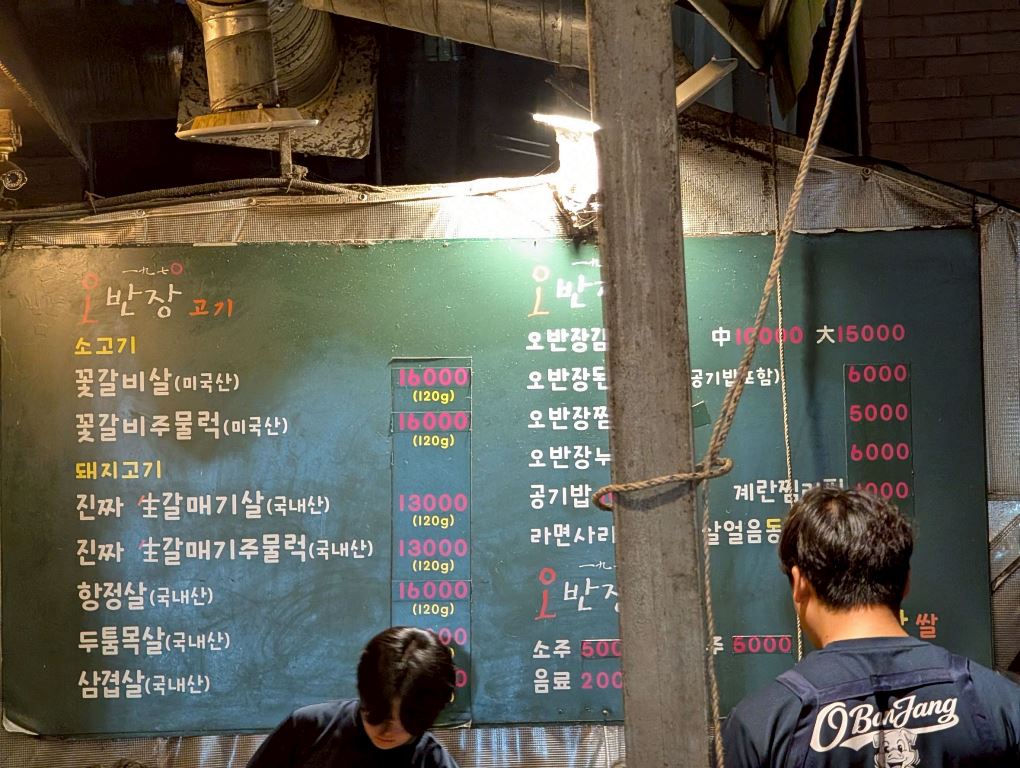 一九七〇
오반장 고기
소고기
꽃갈비살(미국산) 16000
(120g)
꽃갈비주물럭(미국산) 16000
(120g)
돼지고기
진짜 生갈매기살(국내산) 13000
(120g)
진짜 生갈매기주물럭(국내산) 13000
(120g)
항정살(국내산) 16000
(120g)
두툼목살(국내산)
삼겹살(국내산)
오반
오반장김 中10000 大15000
오반장돈 공기밥포함) 6000
오반장찜 5000
오반장누 6000
공기밥 계란찜리필
라면사리 살얼음동
오반장
소주 주 5000
음료
쌀
OBanJang